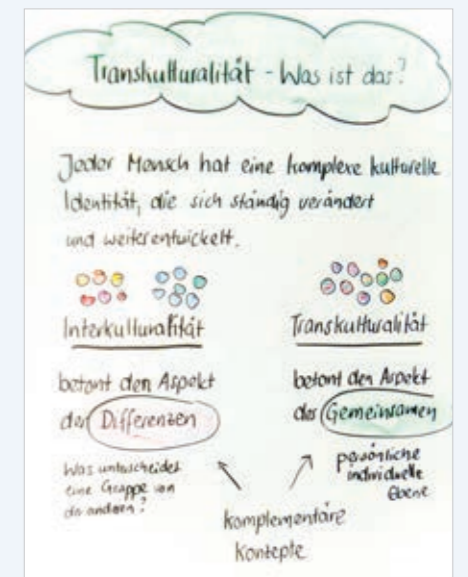 Transkulturalität - Was ist das?
Jeder Mensch hat eine komplexe kulturelle
Identität, die sich ständig verändert
und weiterentwickelt.
Interkulturalität
betont den Aspekt
der Differenzen
Was unterscheidet
eine Gruppe von
der anderen?
Transkulturalität
betont den Aspekt
des Gemeinsamen
persönliche
individuelle
Ebene
komplementäre
Konzepte